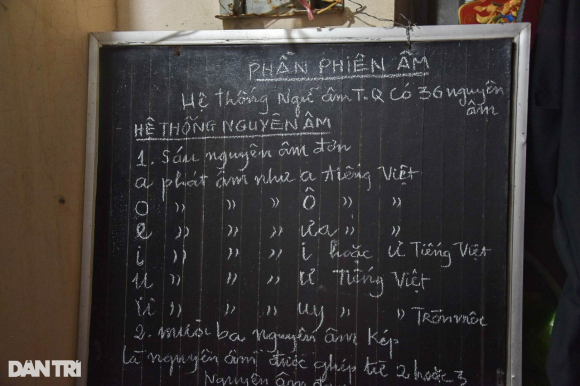 PHẦN PHIÊN ÂM
Hệ thống Ngữ âm T.Q Có 36 nguyên âm
HỆ THỐNG NGUYÊN ÂM
1. Sáu nguyên âm đơn
a phát âm như a tiếng Việt
o " " " Ô " "
e " " " ưa " "
i " " " i hoặc ư Tiếng Việt
u " " " ư Tiếng Việt
ü " " " uy " " Tròn môi
2. mười ba nguyên âm kép
là nguyên âm được ghép từ 2 hoặc 3
Nguyên âm
DÂN TRÍ